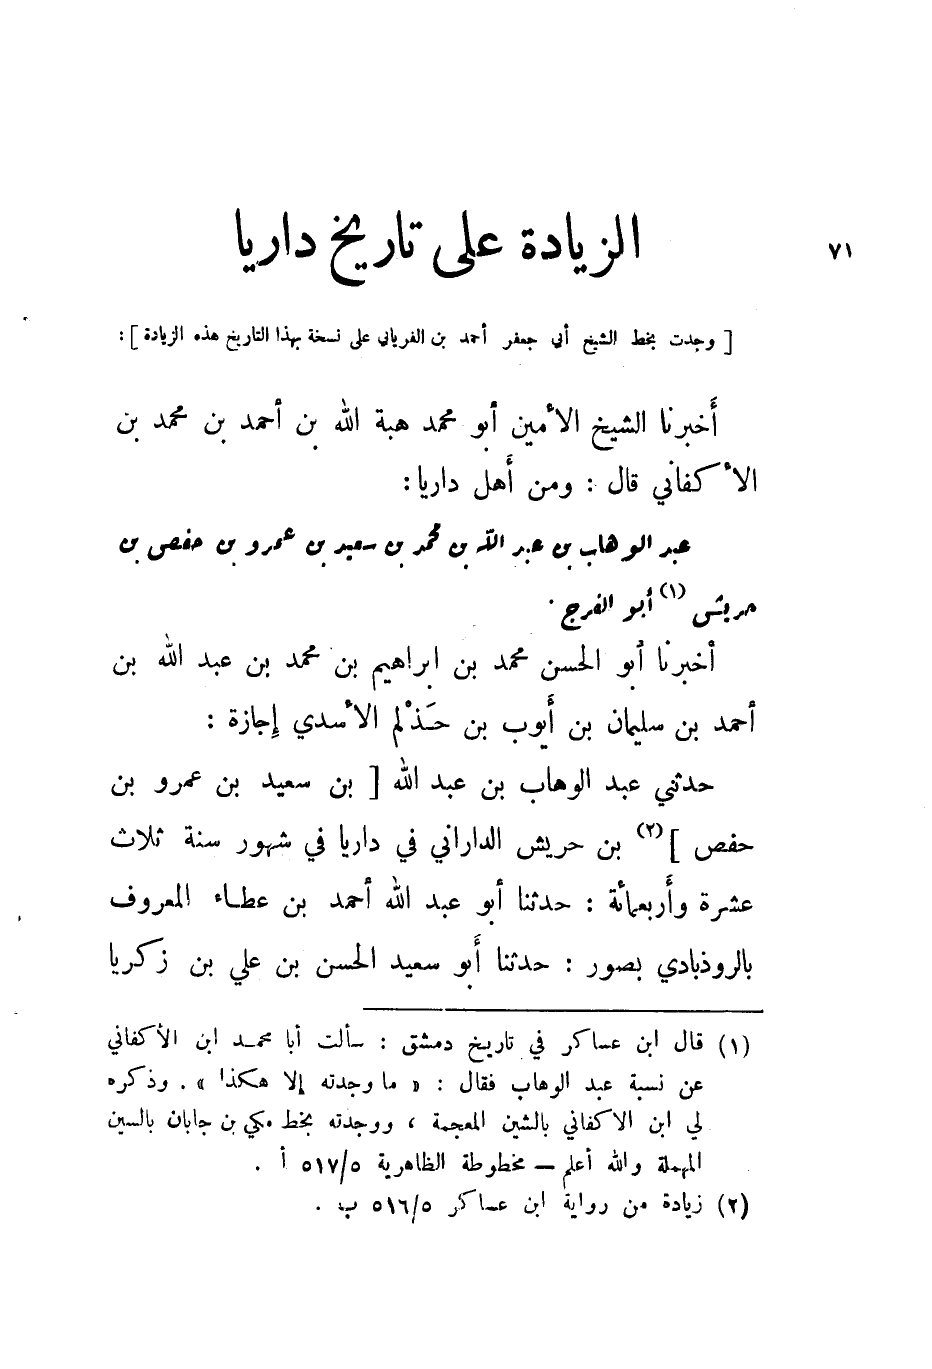 ٧١
الزيادة على تاريخ داريا
[ وجدت بخط الشيخ أبي جعفر أحمد بن الفرياني على نسخة بهذا التاريخ هذه الزيادة ] :
أَخبرنا الشيخ الأمين أبو محمد هبة الله بن أحمد بن محمد بن
الأكفاني قال : ومن أَهل داريا :
عبد الوهاب بن عبد الله بن محمد بن سعيد بن عمرو بن حفص بن
حريش (١) أبو الفرج .
أخبرنا أبو الحسن محمد بن ابراهيم بن محمد بن عبد الله بن
أحمد بن سليمان بن أَيوب بن حَذْلم الأسدي إِجازة :
حدثني عبد الوهاب بن عبد الله [ بن سعيد بن عمرو بن
حفص ] (٢) بن حريش الداراني في داريا في شهور سنة ثلاث
عشرة وأَربعمائة : حدثنا أبو عبد الله أحمد بن عطاء المعروف
بالروذبادي بصور : حدثنا أَبو سعيد الحسن بن علي بن زكريا
(١) قال ابن عساكر في تاريخ دمشق : سألت أبا محمد ابن الأكفاني
عن نسبة عبد الوهاب فقال : « ما وجدته إلا هكذا » . وذكره
لي ابن الاكفاني بالشين المعجمة ، ووجدته بخط مكي بن جابان بالسين
المهملة والله أعلم – مخطوطة الظاهرية ٥١٧/٥ أ .
(٢) زيادة من رواية ابن عساكر ٥١٦/٥ ب .